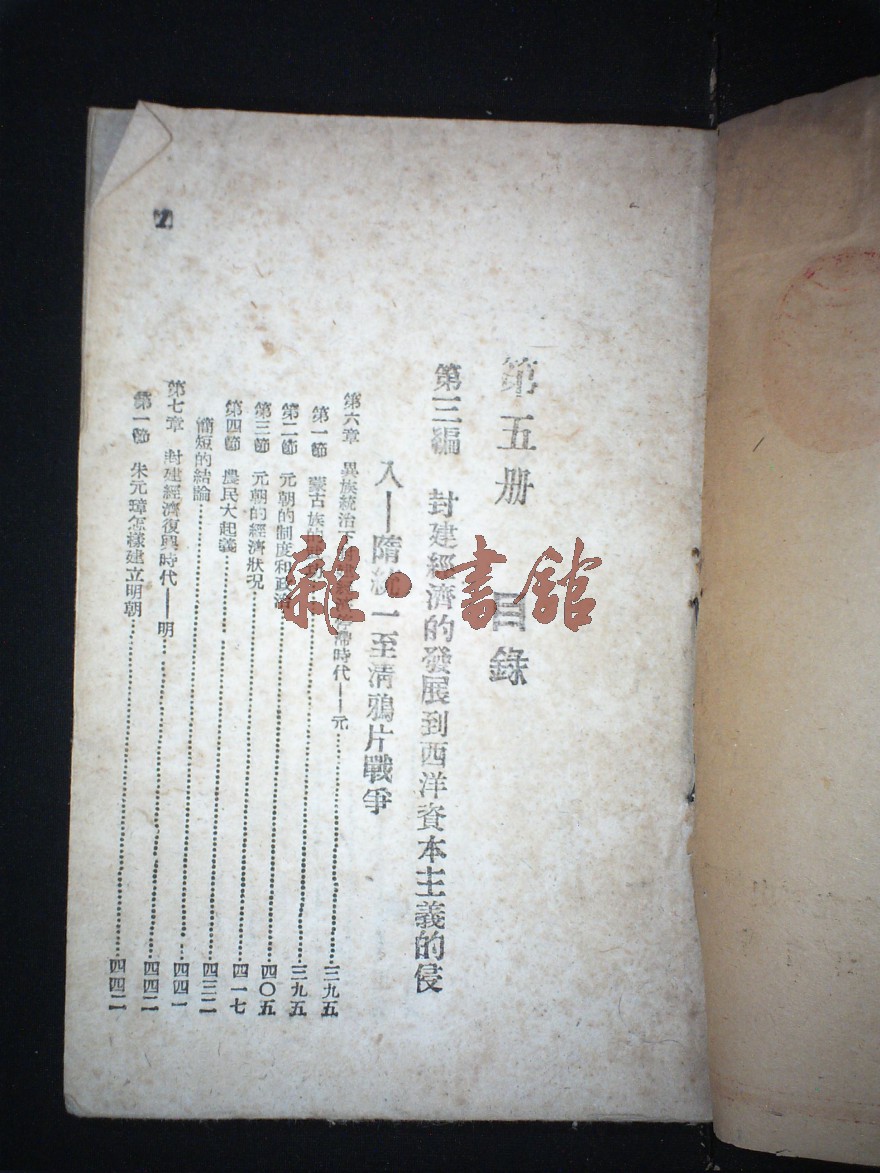 第五册 目錄
第三編 封建經濟的發展到西洋資本主義的侵
入——隋統一至清鴉片戰爭
第六章 異族統治下 時代——元……三九五
第一節 蒙古族的……三九五
第二節 元朝的制度和政治……四〇五
第三節 元朝的經濟狀况……四一七
第四節 農民大起義……四三二
簡短的結論……四四一
第七章 封建經濟復興時代——明……四四二
第一節 朱元璋怎樣建立明朝……四四二
雜·書館